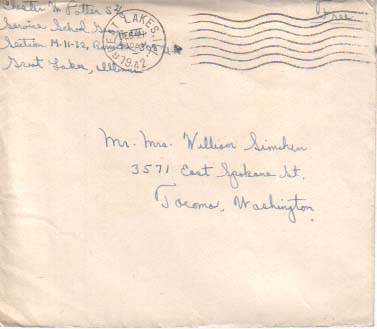 Chester M Potter S2/c
Service School
Section M-11-22,
Great Lakes, Illinois
Free
GREAT LAKES, ILL.
1942
Mr. Mrs. William Simsken
3571 East Spokane St.
Tacoma, Washington.